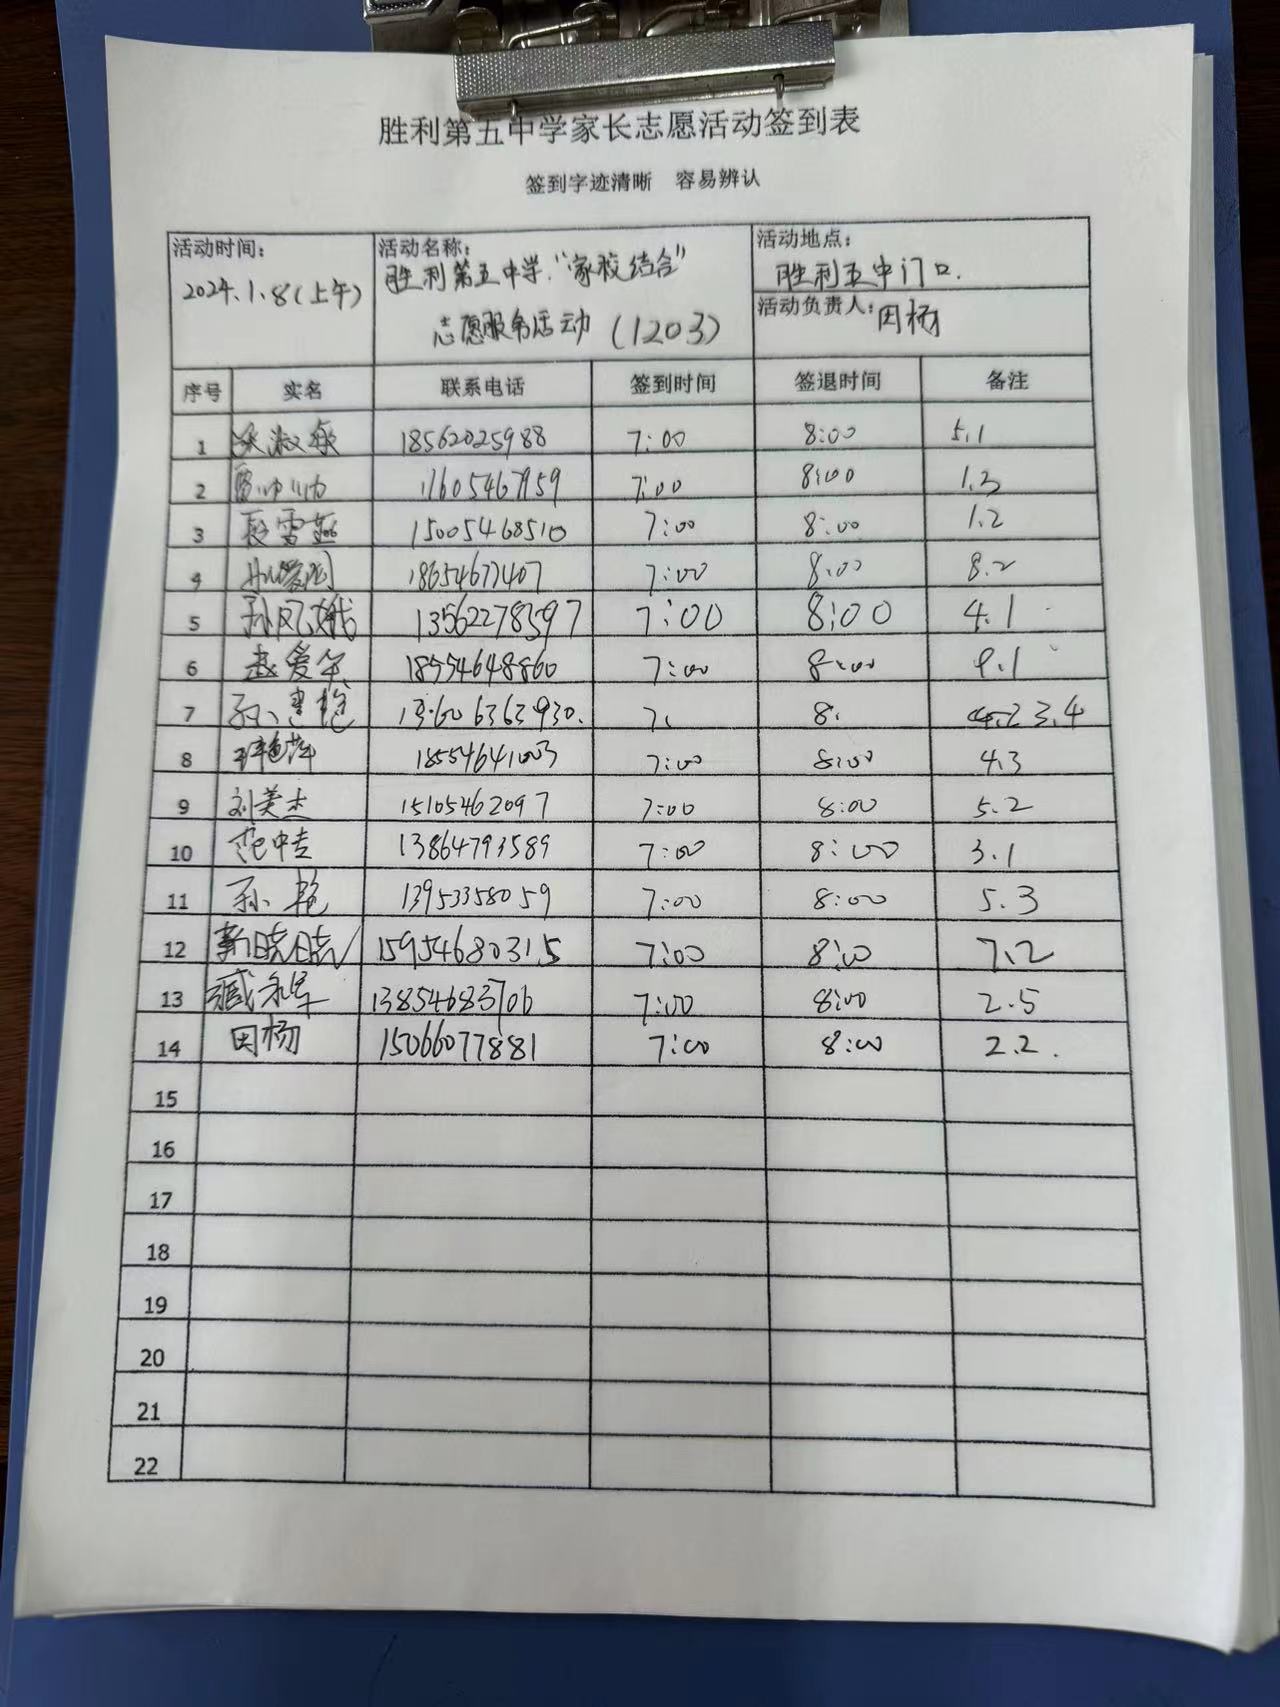 胜利第五中学家长志愿活动签到表
签到字迹清晰 容易辨认
活动时间: 2024.1.8(上午)
活动名称: 胜利第五中学"家校结合"
志愿服务活动 (1203)
活动地点: 胜利五中门口.
活动负责人: 田杨
序号 实名 联系电话 签到时间 签退时间 备注
1 淑敏 18562025988 7:00 8:00 5.1
2 17605467959 7:00 8:00 1.3
3 聂雪燕 15005468510 7:00 8:00 1.2
4 18654677407 7:00 8:00 8.2
5 孙凤娥 13562278597 7:00 8:00 4.1
6 赵爱华 18554648860 7:00 8:00 9.1
7 孙 艳 13606363930. 7: 8: 3.4
8 艳萍 18554641003 7:00 8:00 4.3
9 刘美杰 15105462097 7:00 8:00 5.2
10 范中吉 13864793589 7:00 8:00 3.1
11 孙艳 13953358059 7:00 8:00 5.3
12 靳晓晓 15954680315 7:00 8:00 7.2
13 臧永军 13854683706 7:00 8:00 2.5
14 田杨 15066077881 7:00 8:00 2.2.
15
16
17
18
19
20
21
22